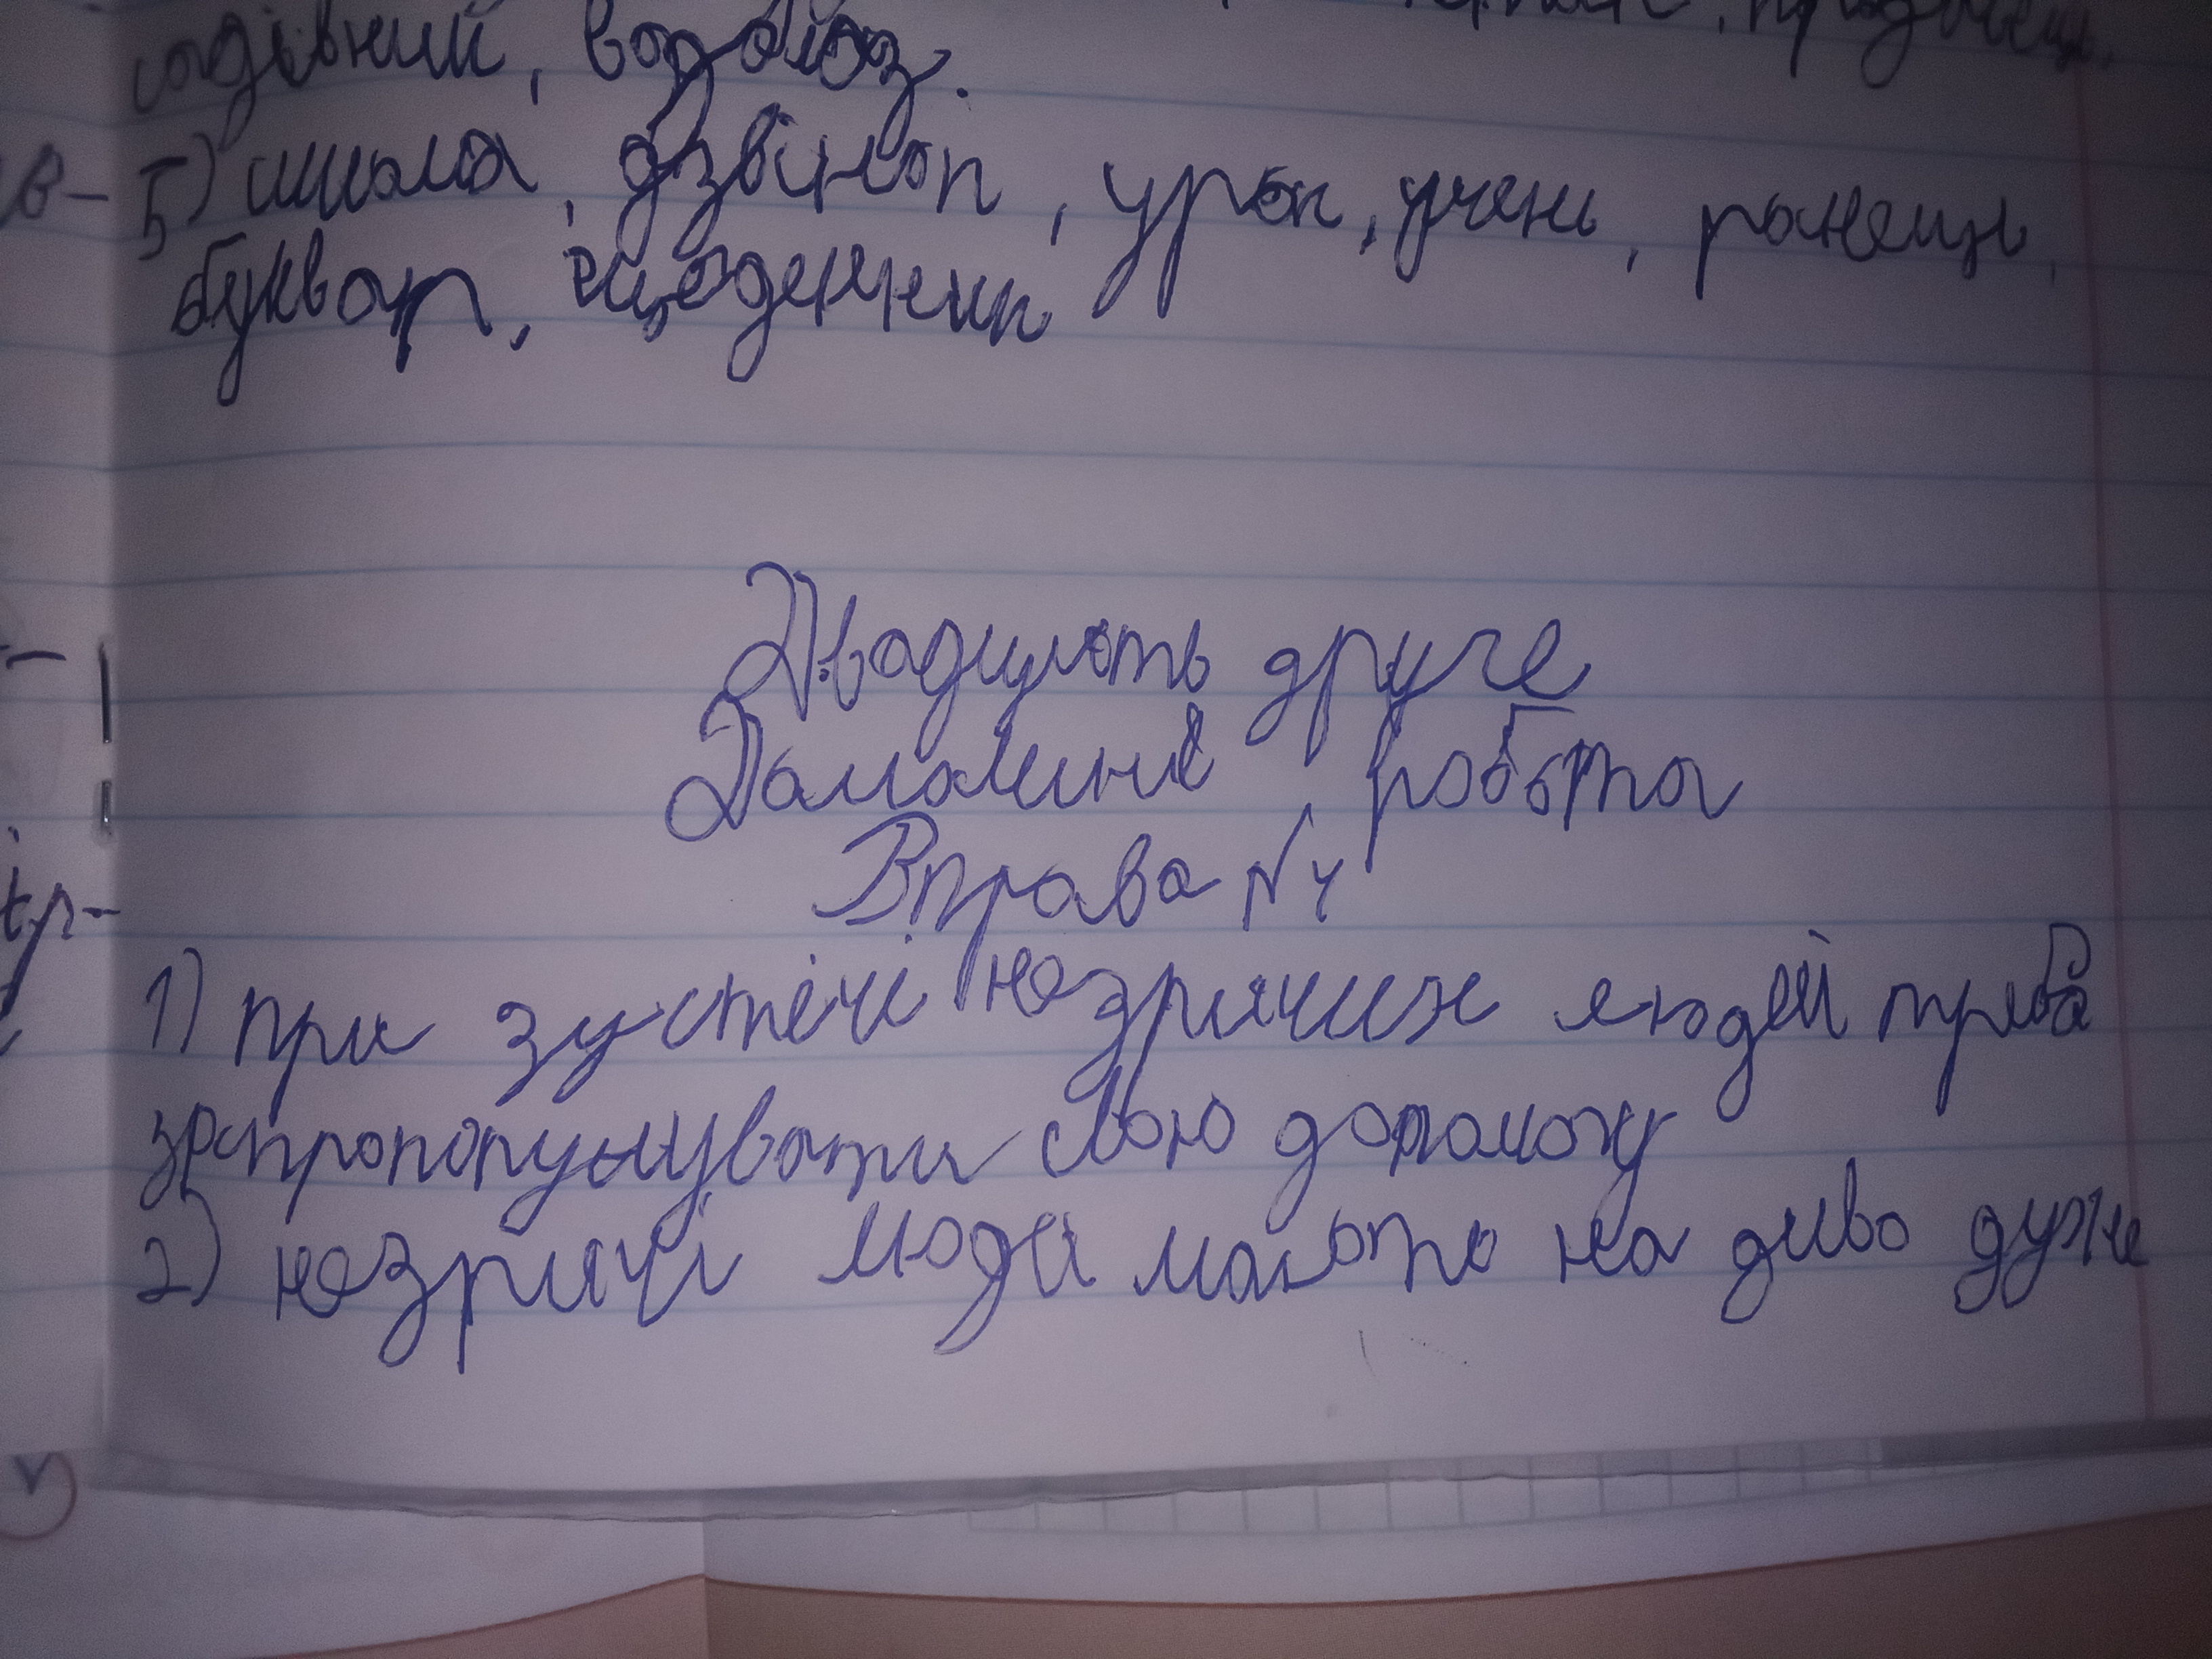 водблоз.
5) школа, дзвінок, урок, учень, ранець,
буквар, щоденник
Двадцять друге
Домашнє робота
Вправа №4
1) при зустрічі незрячих людей треба
запропонувати свою допомогу
2) незрячі люди мають на диво дуже